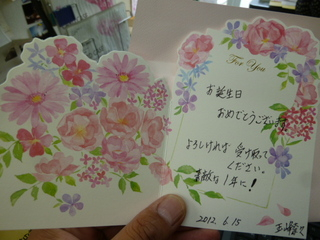 For You
お誕生日
おめでとうございます
よろしければ 受け取って
ください。
素敵な1年に!
2012. 6. 15